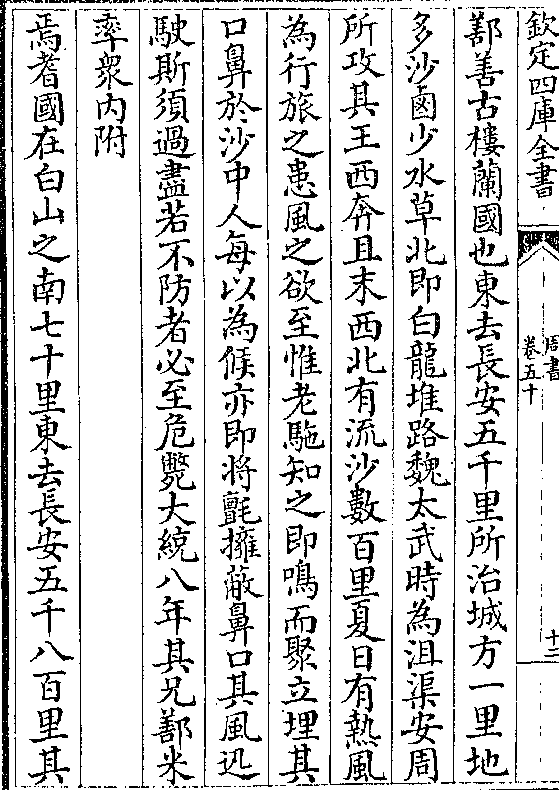 欽定四庫全書
周書
卷五十
十二
鄯善古樓蘭國也東去長安五千里所治城方一里地
多沙鹵少水草北即白龍堆路魏太武時為沮渠安周
所攻其王西奔且末西北有流沙數百里夏日有熱風
為行旅之患風之欲至惟老駞知之即鳴而聚立埋其
口鼻於沙中人每以為候亦即將氊擁蔽鼻口其風迅
駛斯須過盡若不防者必至危斃大統八年其兄鄯米
率衆内附
焉耆國在白山之南七十里東去長安五千八百里其